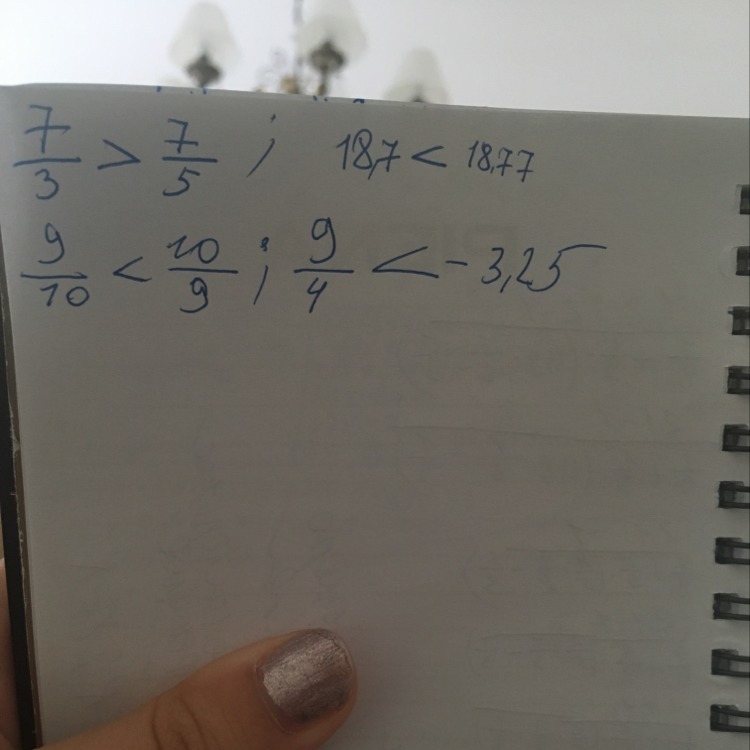 7/3 > 7/5 ; 18,7 < 18,77
9/10 < 10/9 ; 9/4 < -3,25